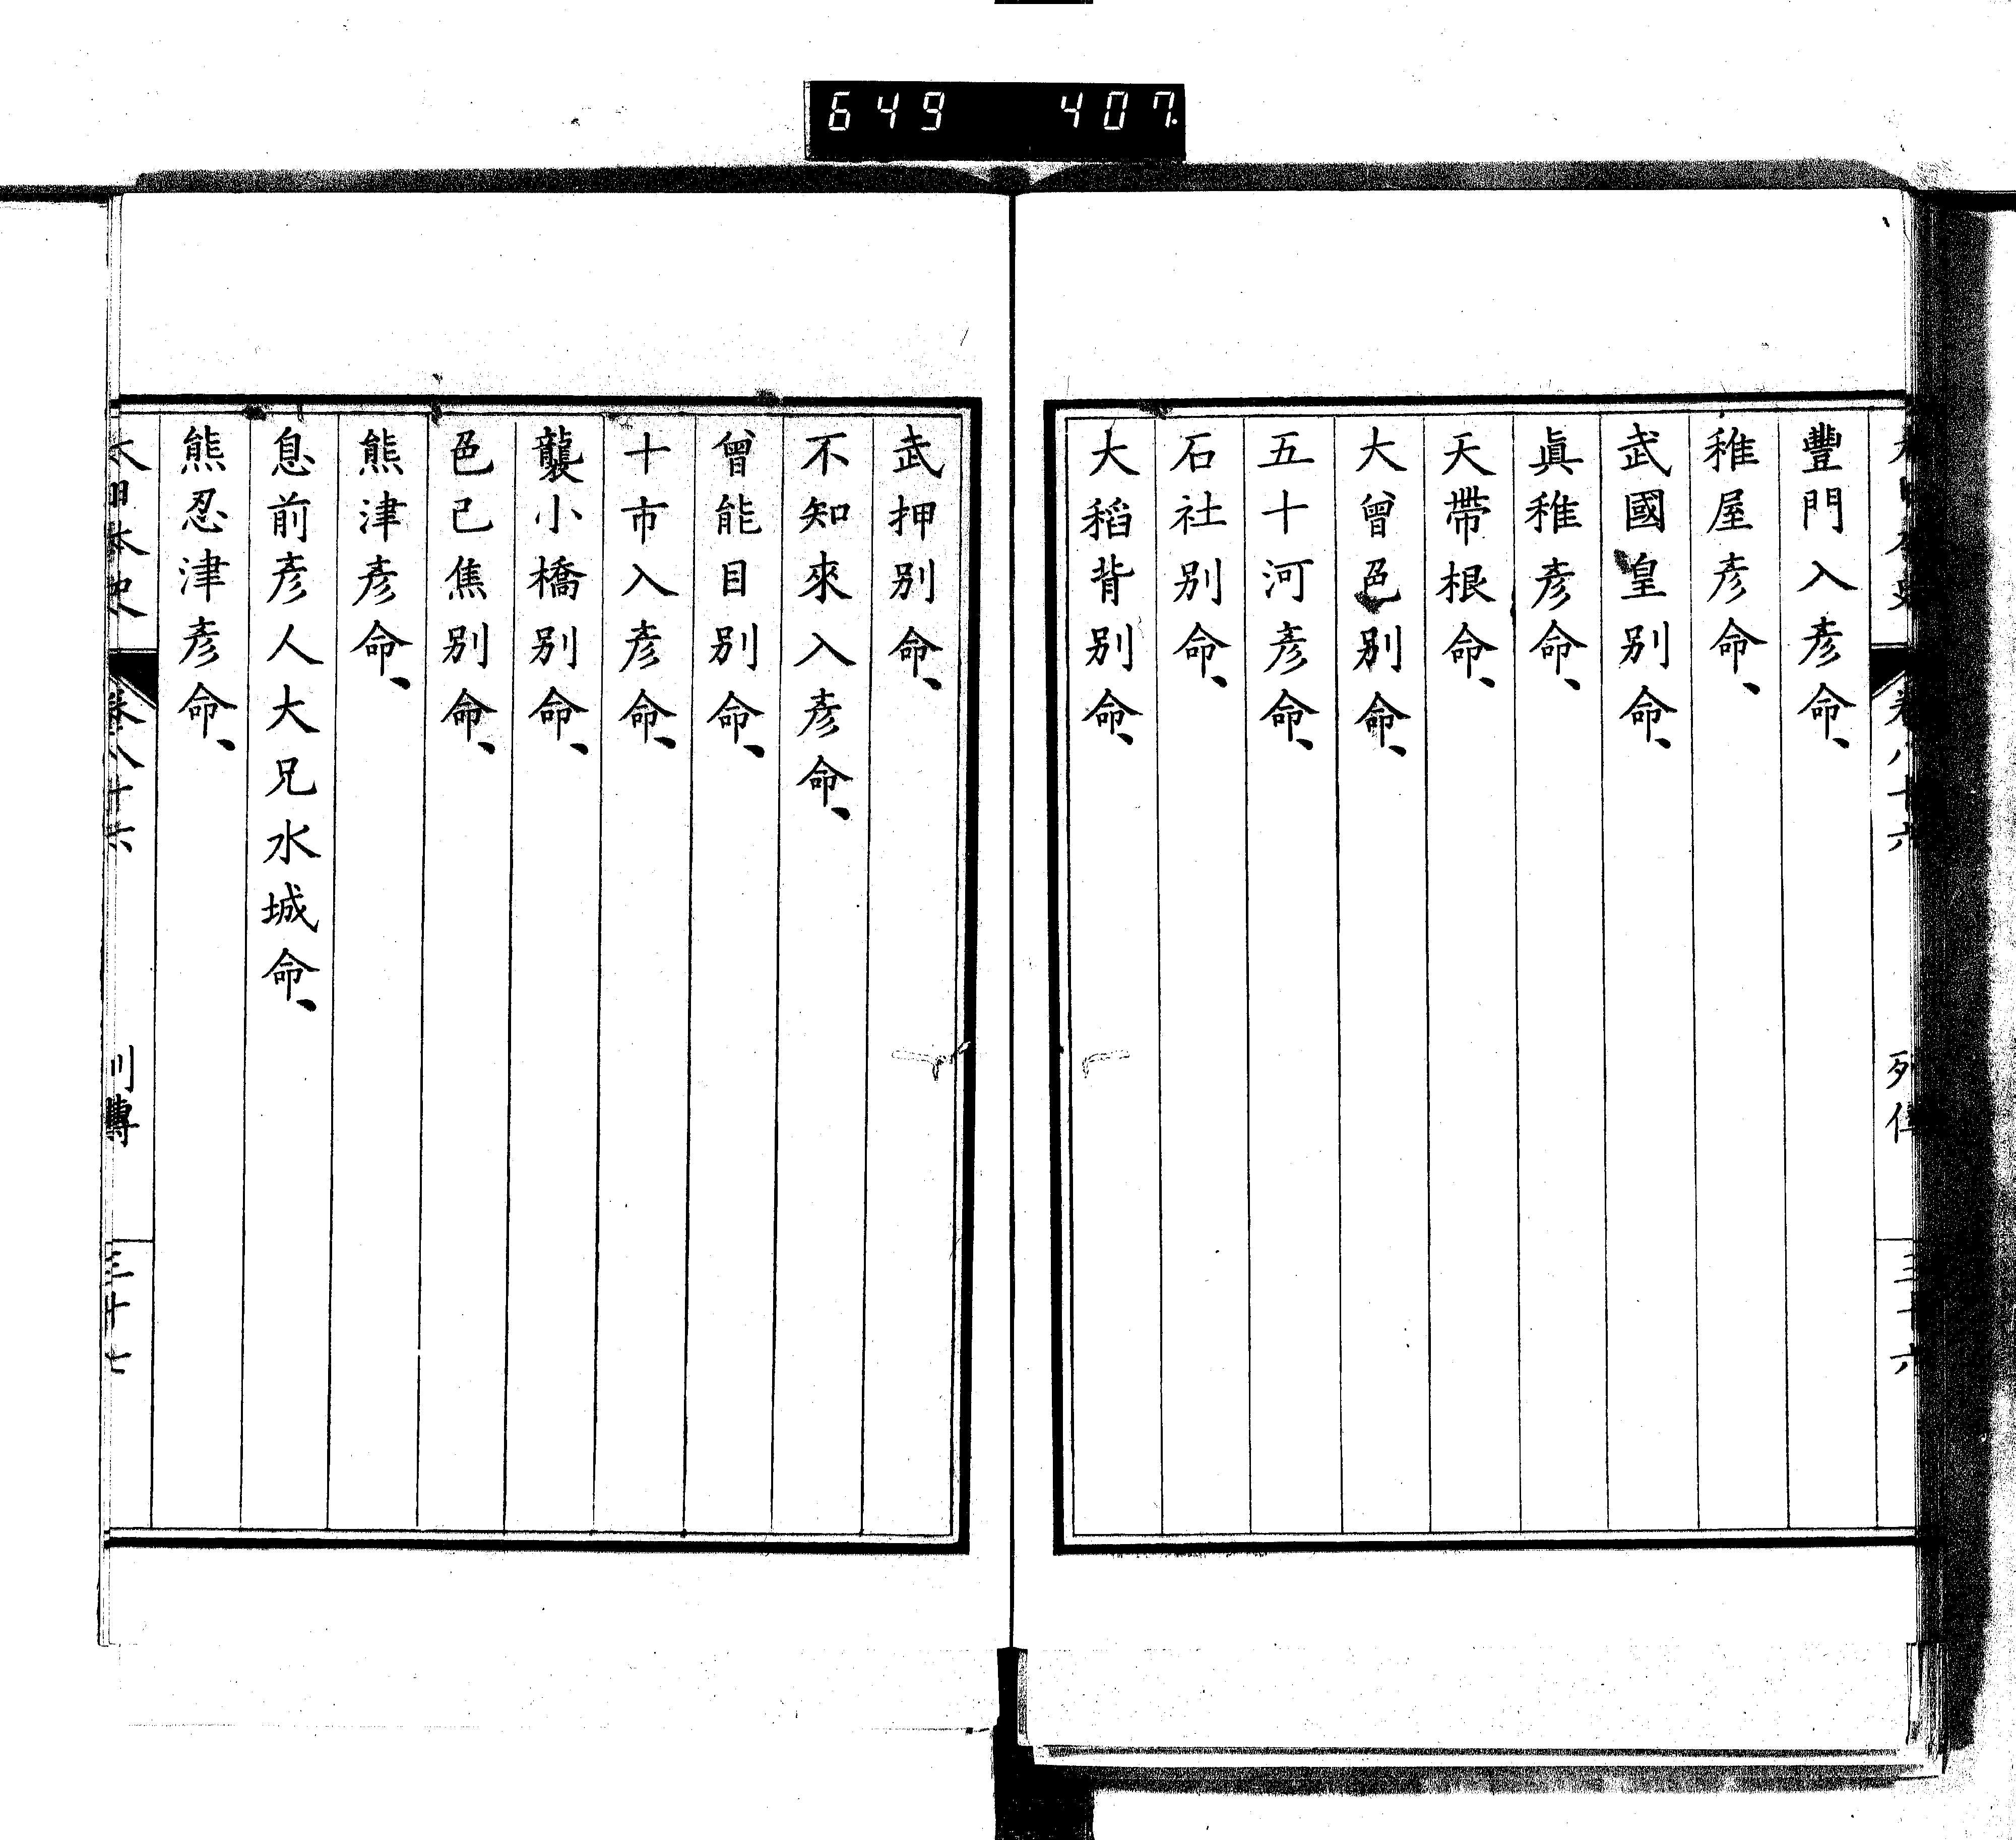 649 407.
大日本史 卷八十六 列傳 三十六
豐門入彥命、
稚屋彥命、
武國皇別命、
眞稚彥命、
天帶根命、
大曾色別命、
五十河彥命、
石社別命、
大稻背別命、
武押別命、
不知來入彥命、
曾能目別命、
十市入彥命、
襲小橋別命、
色己焦別命、
熊津彥命、
息前彥人大兄水城命、
熊忍津彥命、
大日本史 卷八十六 列傳 三十七